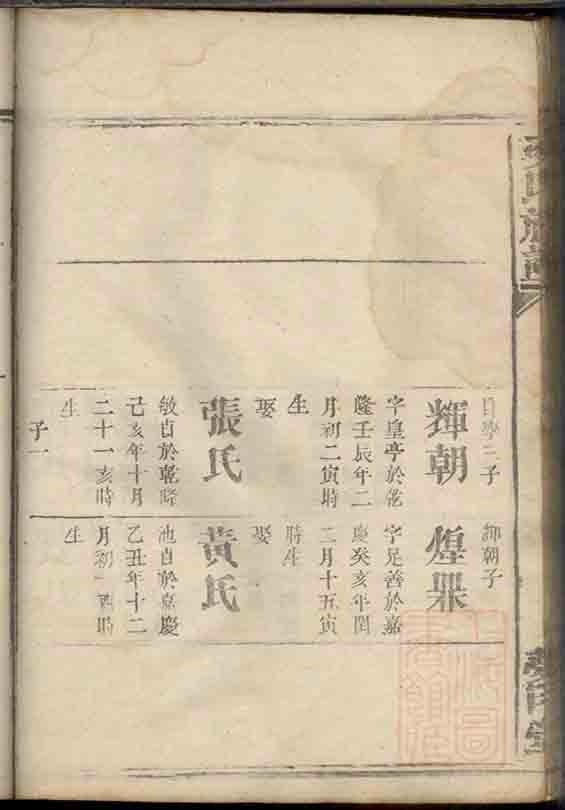 氏族譜
日學二子
輝朝
字皇亭於乾
隆壬辰年二
月初二寅時
生
娶
張氏
敏貞於乾隆
己亥年十月
二十一亥時
生
子一
輝朝子
煌鼎
字足善於嘉
慶癸亥年閏
二月十五寅
時生
娶
黃氏
池貞於嘉慶
乙丑年十二
月初 酉時
生